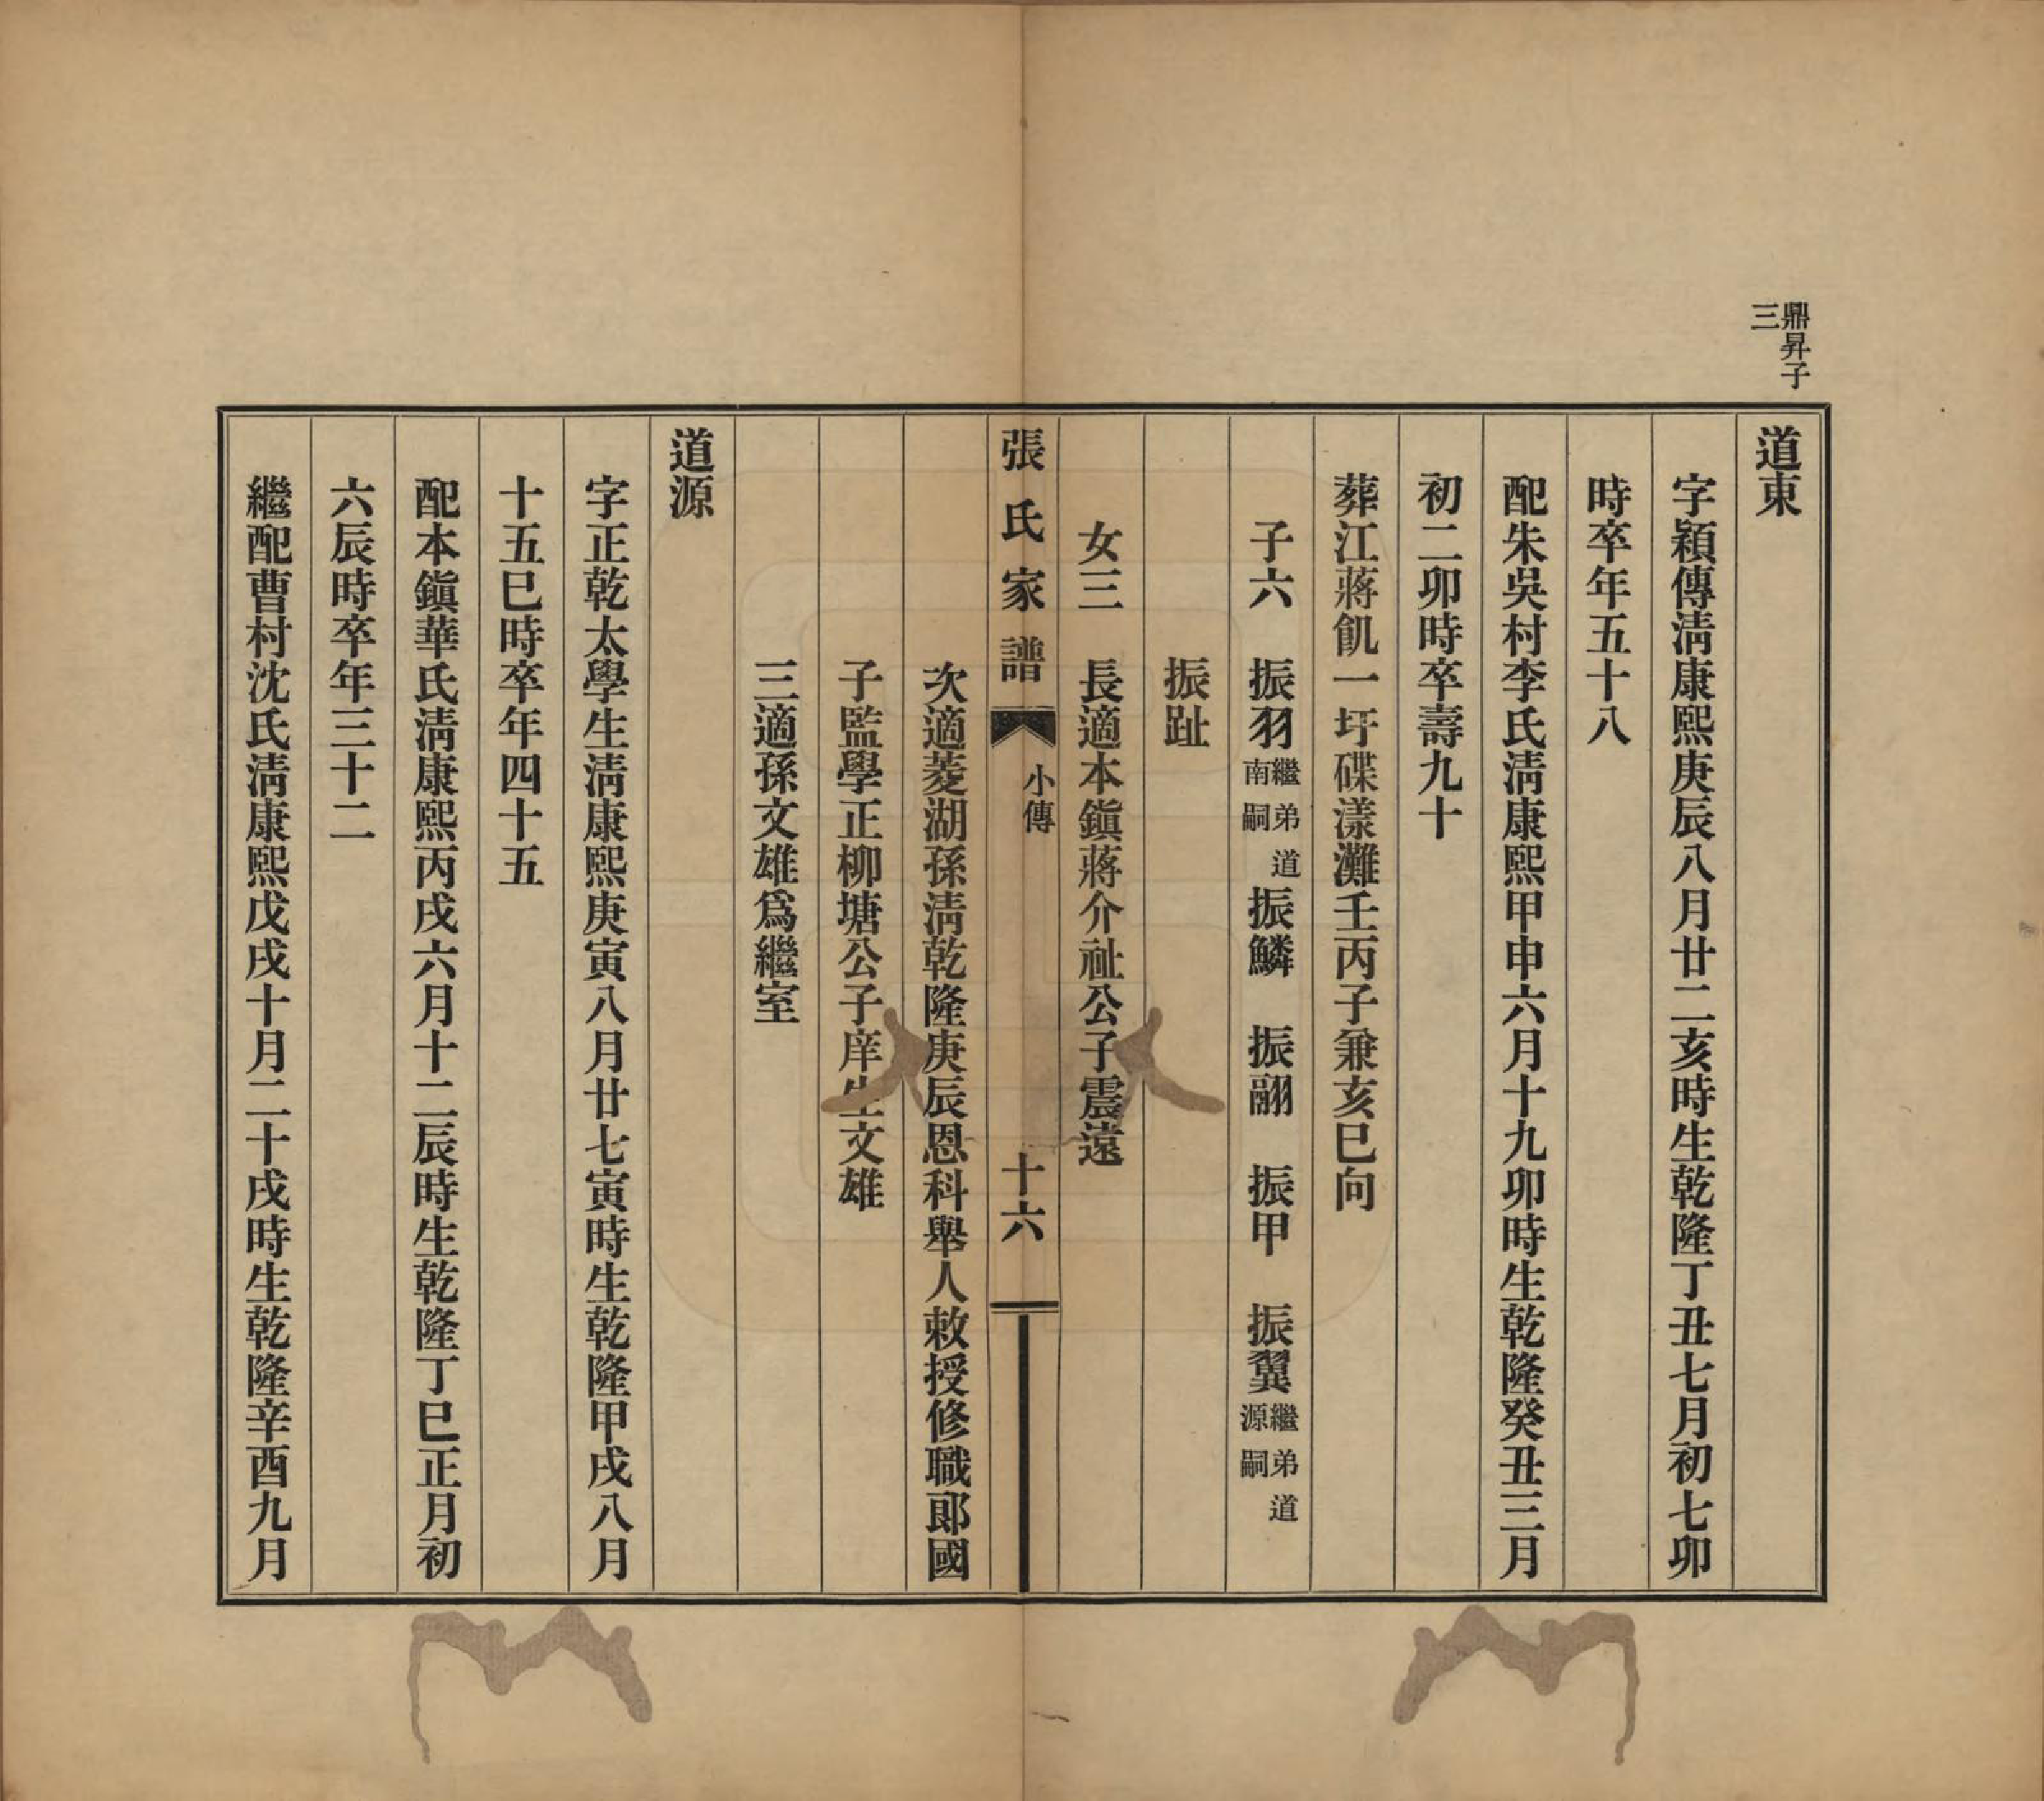 鼎昇子
三
道東
字穎傳淸康熙庚辰八月廿二亥時生乾隆丁丑七月初七卯
時卒年五十八
配朱吳村李氏淸康熙甲申六月十九卯時生乾隆癸丑三月
初二卯時卒壽九十
葬江蔣飢一圩碟漾灘壬丙子兼亥巳向
子六　振羽繼弟道南嗣振鱗　振翮　振甲　振翼繼弟道源嗣
振趾
女三　長適本鎭蔣介祉公子震遠
張氏家譜　小傳　十六
次適菱湖孫淸乾隆庚辰恩科舉人敕授修職郞國
子監學正柳塘公子庠生文雄
三適孫文雄爲繼室
道源
字正乾太學生淸康熙庚寅八月廿七寅時生乾隆甲戌八月
十五巳時卒年四十五
配本鎭華氏淸康熙丙戌六月十二辰時生乾隆丁巳正月初
六辰時卒年三十二
繼配曹村沈氏淸康熙戊戌十月二十戌時生乾隆辛酉九月